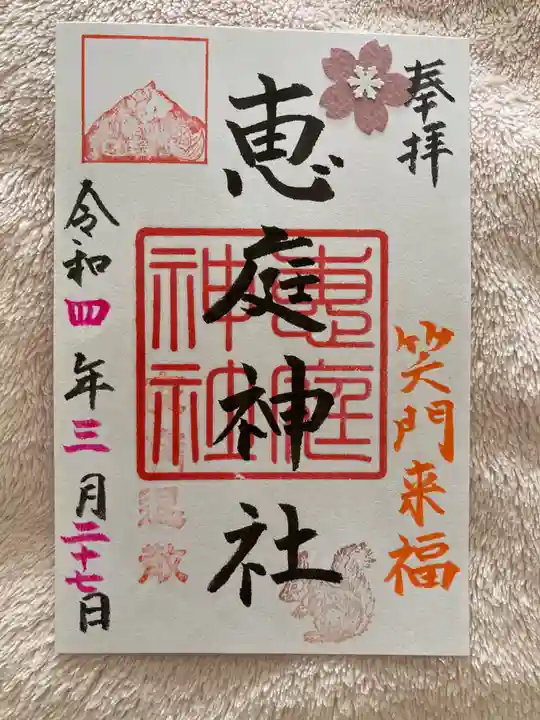 奉拝
笑門来福
恵庭神社
恵庭
神社
退散
令和四年三月二十七日